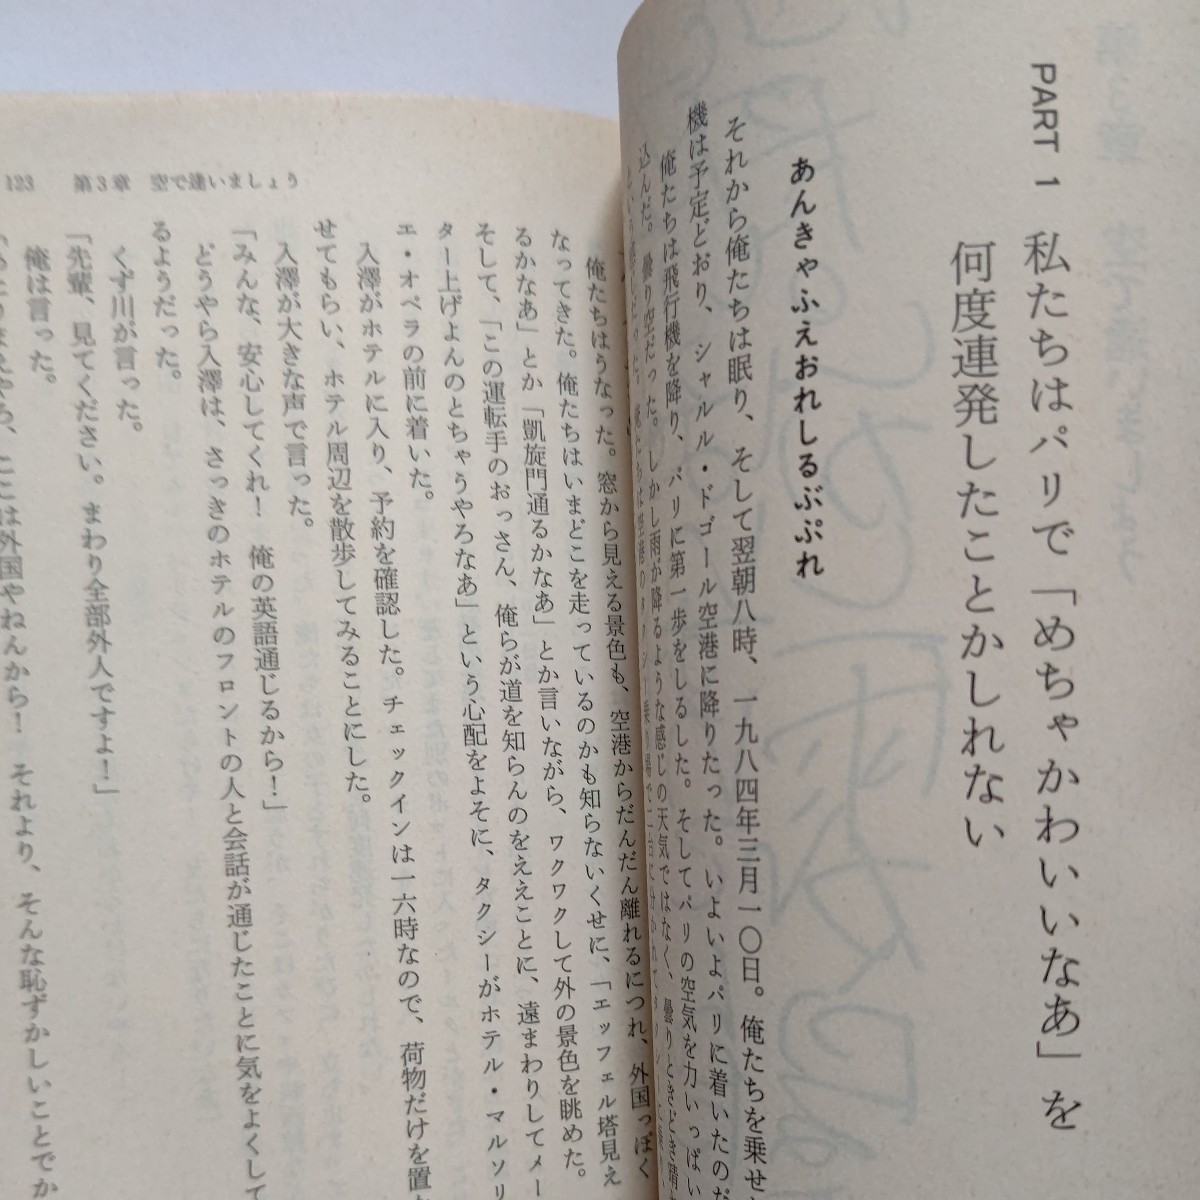 PART 1 私たちはパリで「めちゃかわいいなあ」を
何度連発したことかしれない
あんきゃふえおれしるぶぷれ
それから俺たちは眠り、そして翌朝八時、一九八四年三月一〇日。俺たちを乗せ
機は予定どおり、シャルル・ドゴール空港に降りたった。いよいよパリに着いたのだ
俺たちは飛行機を降り、パリに第一歩をしるした。そしてパリの空気を力いっぱい
込んだ。曇り空だった。しかし雨が降るような感じの天気ではなく、曇りときどき晴
123 第3章 空で逢いましょう
俺たちはうなった。窓から見える景色も、空港からだんだん離れるにつれ、外国っぽく
なってきた。俺たちはいまどこを走っているのかも知らないくせに、「エッフェル塔見え
るかなあ」とか「凱旋門通るかなあ」とか言いながら、ワクワクして外の景色を眺めた。
そして、「この運転手のおっさん、俺らが道を知らんのをええことに、遠まわりしてメー
ター上げよんのとちゃうやろなあ」という心配をよそに、タクシーがホテル・マルソリ
エ・オペラの前に着いた。
入澤がホテルに入り、予約を確認した。チェックインは一六時なので、荷物だけを置
せてもらい、ホテル周辺を散歩してみることにした。
入澤が大きな声で言った。
「みんな、安心してくれ! 俺の英語通じるから!」
どうやら入澤は、さっきのホテルのフロントの人と会話が通じたことに気をよくして
るようだった。
くず川が言った。
「先輩、見てください。まわり全部外人ですよ!」
俺は言った。
ここは外国やねんから! それより、そんな恥ずかしいことでか